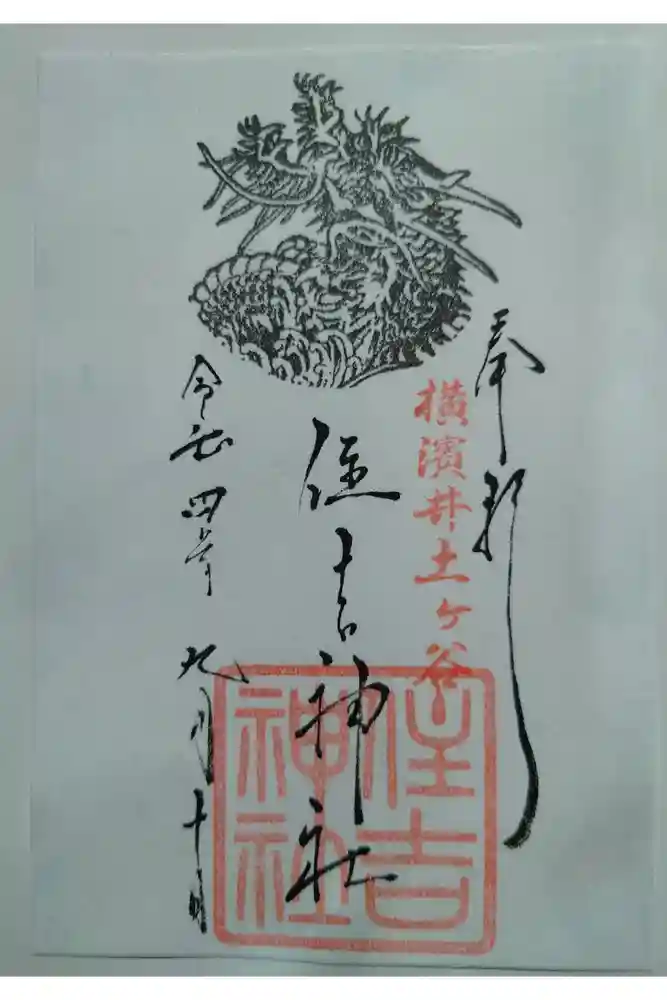 奉拝
横濱井土ヶ谷
住吉神社
住吉神社
令和四年九月十日